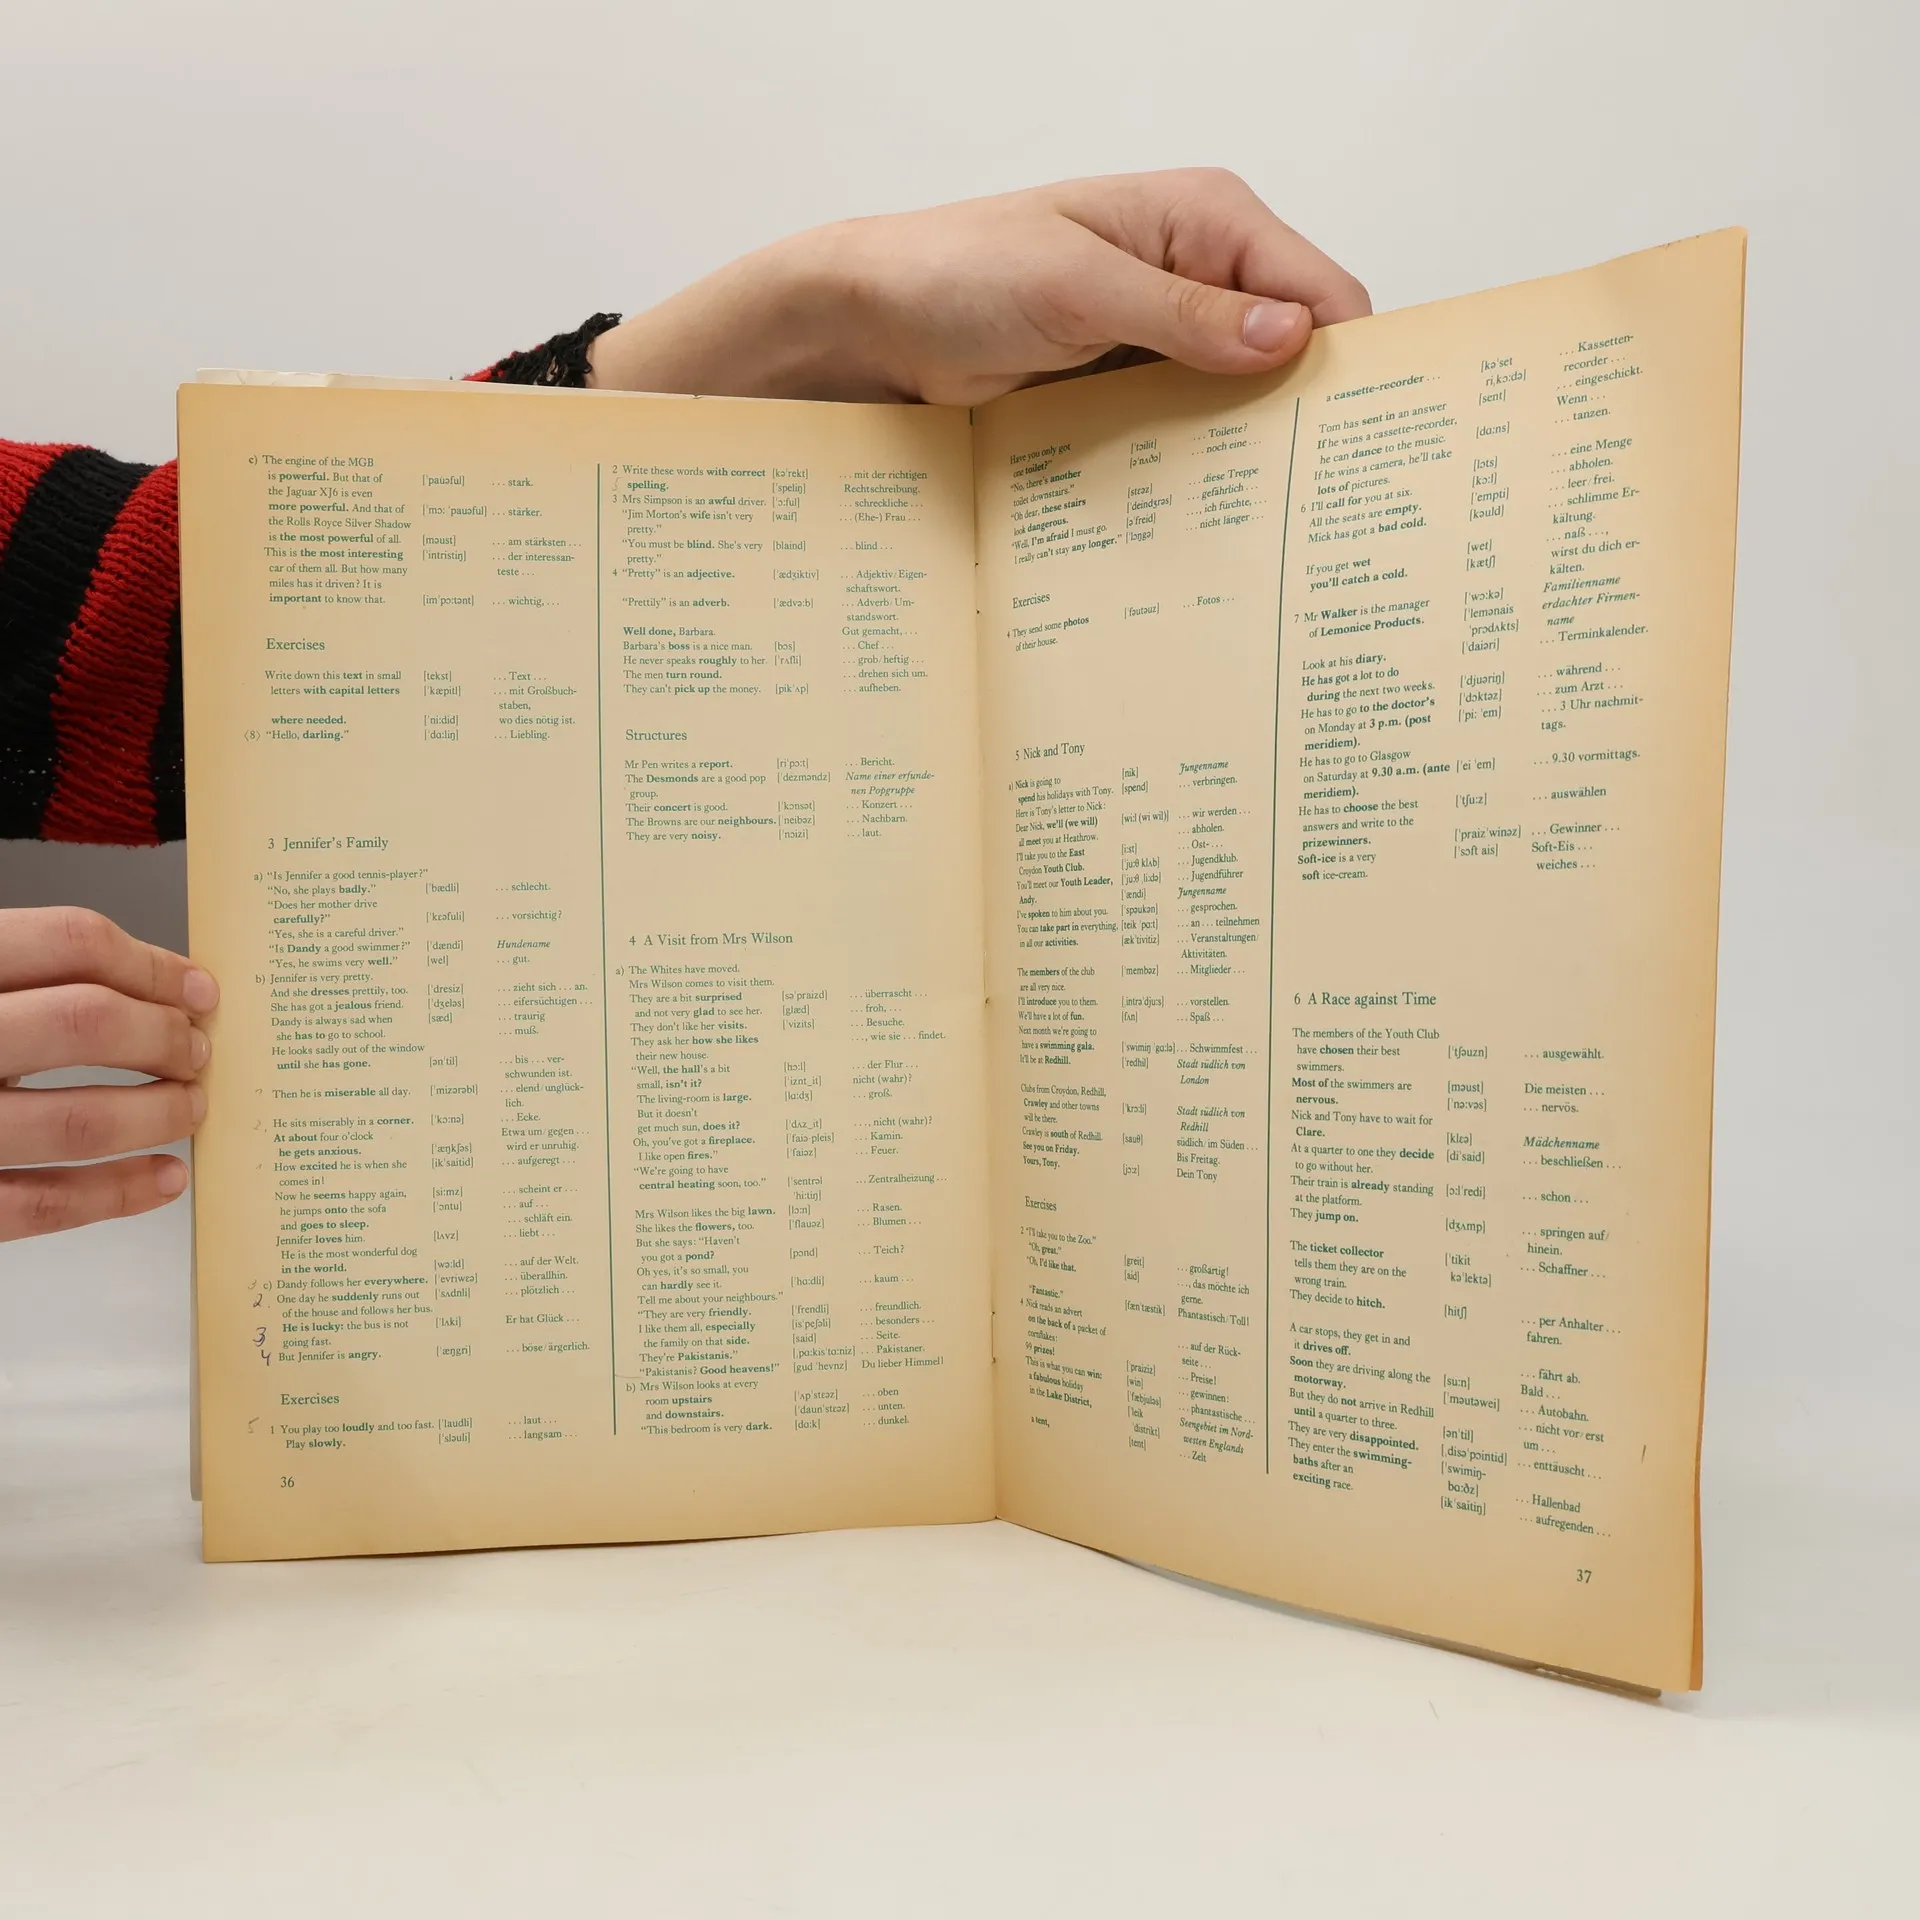 c) The engine of the MGB
is powerful. But that of ['pauəful] ... stark.
the Jaguar XJ6 is even
more powerful. And that of ['mɔ: 'pauəful] ... stärker.
the Rolls Royce Silver Shadow
is the most powerful of all. [məust] ... am stärksten ...
This is the most interesting ['intristiŋ] ... der interessan-
car of them all. But how many teste ...
miles has it driven? It is
important to know that. [im'pɔ:tənt] ... wichtig, ...
Exercises
Write down this text in small [tekst] ... Text ...
letters with capital letters ['kæpitl] ... mit Großbuch-
staben,
where needed. ['ni:did] wo dies nötig ist.
⟨8⟩ "Hello, darling." ['dɑ:liŋ] ... Liebling.
3 Jennifer's Family
a) "Is Jennifer a good tennis-player?"
"No, she plays badly." ['bædli] ... schlecht.
"Does her mother drive
carefully?" ['kɛəfuli] ... vorsichtig?
"Yes, she is a careful driver."
"Is Dandy a good swimmer?" ['dændi] Hundename
"Yes, he swims very well." [wel] ... gut.
b) Jennifer is very pretty.
And she dresses prettily, too. ['dresiz] ... zieht sich ... an.
She has got a jealous friend. ['dʒeləs] ... eifersüchtigen ...
Dandy is always sad when [sæd] ... traurig
she has to go to school. ... muß.
He looks sadly out of the window
until she has gone. [ən'til] ... bis ... ver-
schwunden ist.
Then he is miserable all day. ['mizərəbl] ... elend/unglück-
lich.
He sits miserably in a corner. ['kɔ:nə] ... Ecke.
At about four o'clock Etwa um/gegen ...
he gets anxious. ['æŋkʃəs] wird er unruhig.
How excited he is when she [ik'saitid] ... aufgeregt ...
comes in!
Now he seems happy again, [si:mz] ... scheint er ...
he jumps onto the sofa ['ɔntu] ... auf ...
and goes to sleep. ... schläft ein.
Jennifer loves him. [lʌvz] ... liebt ...
He is the most wonderful dog
in the world. [wə:ld] ... auf der Welt.
c) Dandy follows her everywhere. ['evriwɛə] ... überallhin.
2 One day he suddenly runs out ['sʌdnli] ... plötzlich ...
of the house and follows her bus.
3 He is lucky: the bus is not ['lʌki] Er hat Glück ...
going fast.
4 But Jennifer is angry. ['æŋgri] ... böse/ärgerlich.
Exercises
5 1 You play too loudly and too fast. ['laudli] ... laut ...
Play slowly. ['sləuli] ... langsam ...
36
2 Write these words with correct [kə'rekt] ... mit der richtigen
spelling. ['speliŋ] Rechtschreibung.
3 Mrs Simpson is an awful driver. ['ɔ:ful] ... schreckliche ...
"Jim Morton's wife isn't very [waif] ... (Ehe-) Frau ...
pretty."
"You must be blind. She's very [blaind] ... blind ...
pretty."
4 "Pretty" is an adjective. ['ædʒiktiv] ... Adjektiv/Eigen-
schaftswort.
"Prettily" is an adverb. ['ædvə:b] ... Adverb/Um-
standswort.
Well done, Barbara. Gut gemacht, ...
Barbara's boss is a nice man. [bɔs] ... Chef ...
He never speaks roughly to her. ['rʌfli] ... grob/heftig ...
The men turn round. ... drehen sich um.
They can't pick up the money. [pik'ʌp] ... aufheben.
Structures
Mr Pen writes a report. [ri'pɔ:t] ... Bericht.
The Desmonds are a good pop ['dezməndz] Name einer erfunde-
group. nen Popgruppe
Their concert is good. ['kɔnsət] ... Konzert ...
The Browns are our neighbours. ['neibəz] ... Nachbarn.
They are very noisy. ['nɔizi] ... laut.
4 A Visit from Mrs Wilson
a) The Whites have moved.
Mrs Wilson comes to visit them.
They are a bit surprised [sə'praizd] ... überrascht ...
and not very glad to see her. [glæd] ... froh, ...
They don't like her visits. ['vizits] ... Besuche.
They ask her how she likes ..., wie sie ... findet.
their new house.
"Well, the hall's a bit [hɔ:l] ... der Flur ...
small, isn't it? ['iznt_it] nicht (wahr)?
The living-room is large. [lɑ:dʒ] ... groß.
But it doesn't
get much sun, does it? ['dʌz_it] ..., nicht (wahr)?
Oh, you've got a fireplace. ['faiə-pleis] ... Kamin.
I like open fires." ['faiəz] ... Feuer.
"We're going to have
central heating soon, too." ['sentrəl ... Zentralheizung ...
'hi:tiŋ]
Mrs Wilson likes the big lawn. [lɔ:n] ... Rasen.
She likes the flowers, too. ['flauəz] ... Blumen ...
But she says: "Haven't
you got a pond? [pɔnd] ... Teich?
Oh yes, it's so small, you
can hardly see it. ['hɑ:dli] ... kaum ...
Tell me about your neighbours."
"They are very friendly. ['frendli] ... freundlich.
I like them all, especially [is'peʃəli] ... besonders ...
the family on that side. [said] ... Seite.
They're Pakistanis." [,pɑ:kis'tɑ:niz] ... Pakistaner.
"Pakistanis? Good heavens!" [gud 'hevnz] Du lieber Himmel!
b) Mrs Wilson looks at every
room upstairs ['ʌp'stɛəz] ... oben
and downstairs. ['daun'stɛəz] ... unten.
"This bedroom is very dark. [dɑ:k] ... dunkel.
Have you only got
one toilet?" ['tɔilit] ... Toilette?
"No, there's another [ə'nʌðə] ... noch eine ...
toilet downstairs."
"Oh dear, these stairs [stɛəz] ... diese Treppe
look dangerous. ['deindʒrəs] ... gefährlich ...
"Well, I'm afraid I must go. [ə'freid] ..., ich fürchte, ...
I really can't stay any longer." ['lɔŋgə] ... nicht länger ...
Exercises
4 They send some photos ['fəutəuz] ... Fotos ...
of their house.
5 Nick and Tony
a) Nick is going to [nik] Jungenname
spend his holidays with Tony. [spend] ... verbringen.
Here is Tony's letter to Nick:
Dear Nick, we'll (we will) [wi:l (wi wil)] ... wir werden ...
all meet you at Heathrow. ... abholen.
I'll take you to the East [i:st] ... Ost-...
Croydon Youth Club. ['ju:θ klʌb] ... Jugendklub.
You'll meet our Youth Leader, ['ju:θ ,li:də] ... Jugendführer
Andy. ['ændi] Jungenname
I've spoken to him about you. ['spəukən] ... gesprochen.
You can take part in everything, [teik 'pɑ:t] ... an ... teilnehmen
in all our activities. [æk'tivitiz] ... Veranstaltungen/
Aktivitäten.
The members of the club ['membəz] ... Mitglieder ...
are all very nice.
I'll introduce you to them. [,intrə'dju:s] ... vorstellen.
We'll have a lot of fun. [fʌn] ... Spaß ...
Next month we're going to
have a swimming gala. ['swimiŋ 'gɑ:lə] ... Schwimmfest ...
It'll be at Redhill. ['redhil] Stadt südlich von
London
Clubs from Croydon, Redhill,
Crawley and other towns ['krɔ:li] Stadt südlich von
will be there. Redhill
Crawley is south of Redhill. [sauθ] südlich/im Süden ...
See you on Friday. Bis Freitag.
Yours, Tony. [jɔ:z] Dein Tony
Exercises
2 "I'll take you to the Zoo."
"Oh, great." [greit] ... großartig!
"Oh, I'd like that. [aid] ..., das möchte ich
gerne.
"Fantastic." [fæn'tæstik] Phantastisch/Toll!
4 Nick reads an advert
on the back of a packet of ... auf der Rück-
cornflakes: seite ...
99 prizes! ['praiziz] ... Preise!
This is what you can win: [win] ... gewinnen:
a fabulous holiday ['fæbjuləs] ... phantastische ...
in the Lake District, ['leik Seengebiet im Nord-
'distrikt] westen Englands
a tent, [tent] ... Zelt
a cassette-recorder ... [kə'set ... Kassetten-
ri,kɔ:də] recorder ...
Tom has sent in an answer [sent] ... eingeschickt.
If he wins a cassette-recorder, Wenn ...
he can dance to the music. [dɑ:ns] ... tanzen.
If he wins a camera, he'll take
lots of pictures. [lɔts] ... eine Menge
6 I'll call for you at six. [kɔ:l] ... abholen.
All the seats are empty. ['empti] ... leer/frei.
Mick has got a bad cold. [kəuld] ... schlimme Er-
kältung.
If you get wet [wet] ... naß ...,
you'll catch a cold. [kætʃ] wirst du dich er-
kälten.
7 Mr Walker is the manager ['wɔ:kə] Familienname
of Lemonice Products. ['lemənais erdachter Firmen-
'prɔdʌkts] name
Look at his diary. ['daiəri] ... Terminkalender.
He has got a lot to do
during the next two weeks. ['djuəriŋ] ... während ...
He has to go to the doctor's ['dɔktəz] ... zum Arzt ...
on Monday at 3 p.m. (post ['pi: 'em] ... 3 Uhr nachmit-
meridiem). tags.
He has to go to Glasgow
on Saturday at 9.30 a.m. (ante ['ei 'em] ... 9.30 vormittags.
meridiem).
He has to choose the best ['tʃu:z] ... auswählen
answers and write to the
prizewinners. ['praiz'winəz] ... Gewinner ...
Soft-ice is a very ['sɔft ais] Soft-Eis ...
soft ice-cream. weiches ...
6 A Race against Time
The members of the Youth Club
have chosen their best ['tʃəuzn] ... ausgewählt.
swimmers.
Most of the swimmers are [məust] Die meisten ...
nervous. ['nə:vəs] ... nervös.
Nick and Tony have to wait for
Clare. [klɛə] Mädchenname
At a quarter to one they decide [di'said] ... beschließen ...
to go without her.
Their train is already standing [ɔ:l'redi] ... schon ...
at the platform.
They jump on. [dʒʌmp] ... springen auf/
hinein.
The ticket collector ['tikit ... Schaffner ...
tells them they are on the kə'lektə]
wrong train.
They decide to hitch. [hitʃ] ... per Anhalter ...
fahren.
A car stops, they get in and
it drives off. ... fährt ab.
Soon they are driving along the [su:n] Bald ...
motorway. ['məutəwei] ... Autobahn.
But they do not arrive in Redhill
until a quarter to three. [ən'til] ... nicht vor/erst
um ...
They are very disappointed. [,disə'pɔintid] ... enttäuscht ...
They enter the swimming- ['swimiŋ-
baths after an bɑ:ðz] ... Hallenbad
exciting race. [ik'saitiŋ] ... aufregenden ...
37